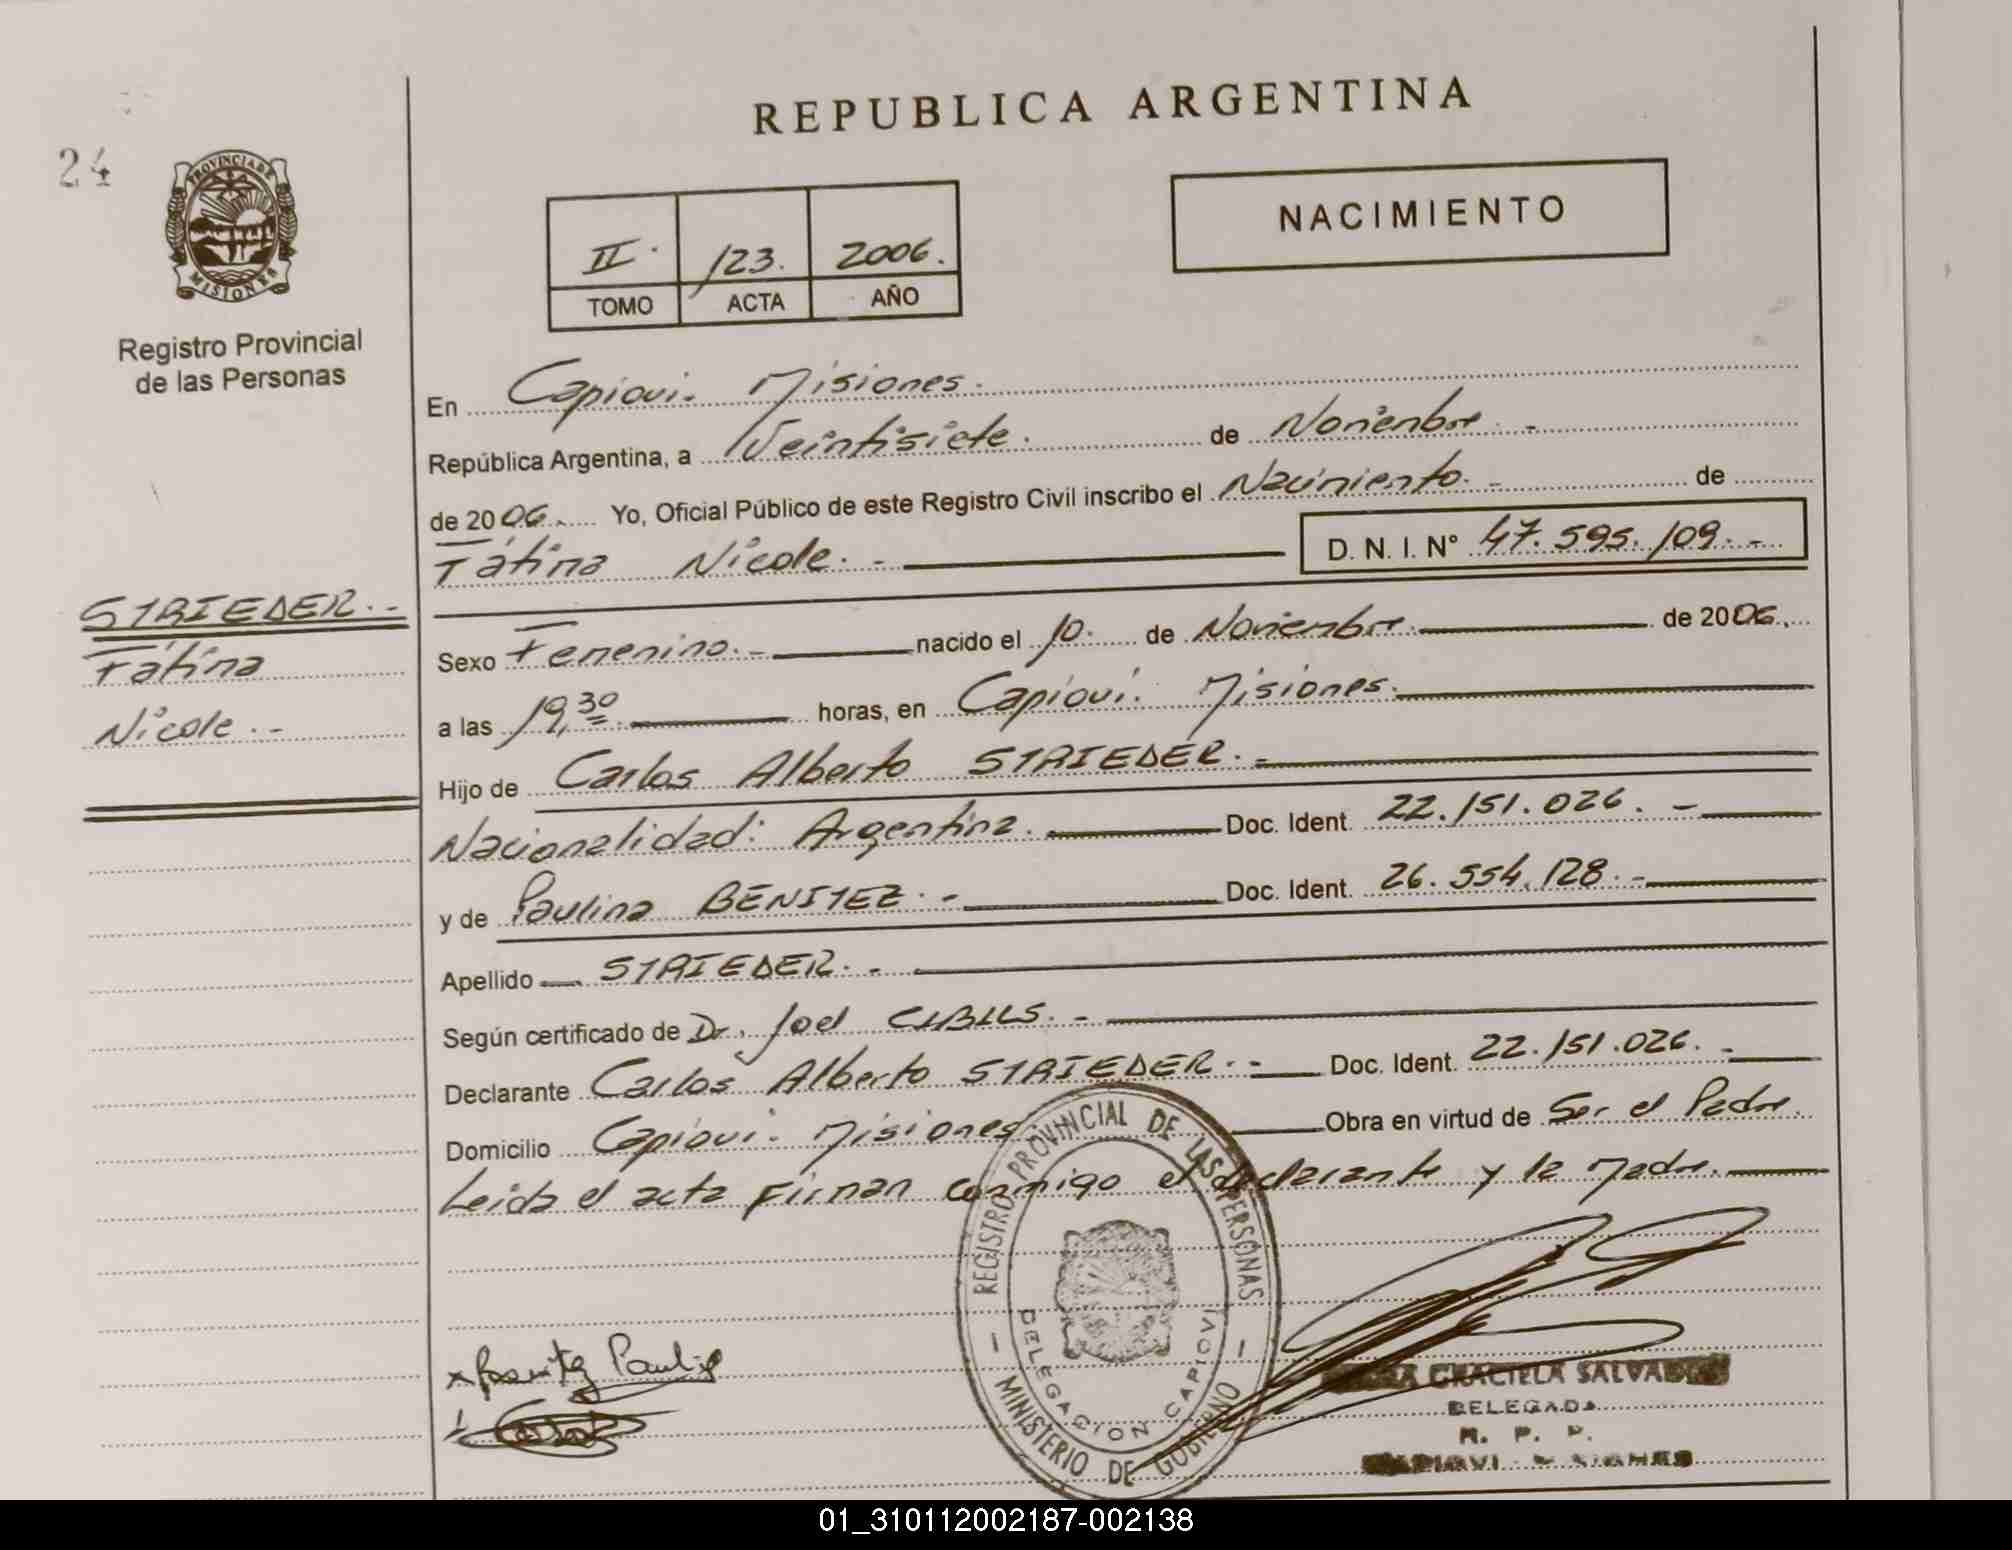 REPUBLICA ARGENTINA
24
PROVINCIA DE
MISIONES
Registro Provincial
de las Personas
II. 123. 2006.
TOMO ACTA AÑO
NACIMIENTO
En Capioví. Misiones.
República Argentina, a Veintisiete. de Noviembre. -
de 2006. Yo, Oficial Público de este Registro Civil inscribo el Nacimiento. - de
Fátima Nicole. - D. N. I. N° 47.595.109. -
STRIEDER. -
Fátima
Nicole. -
Sexo Femenino. - nacido el 10. de Noviembre. de 2006.
a las 19,30 horas, en Capioví. Misiones.
Hijo de Carlos Alberto STRIEDER. -
Nacionalidad: Argentina. Doc. Ident. 22.151.026. -
y de Paulina BENITEZ. - Doc. Ident. 26.554.128. -
Apellido STRIEDER. -
Según certificado de Dr. Joel CIBILS. -
Declarante Carlos Alberto STRIEDER. - Doc. Ident. 22.151.026. -
Domicilio Capioví. Misiones Obra en virtud de Ser el Padre.
Leida el acta firman conmigo el declarante y la Madre.
REGISTRO PROVINCIAL DE LAS PERSONAS
DELEGACION CAPIOVI
MINISTERIO DE GOBIERNO
GRACIELA SALVADOR
DELEGADA
R. P. P.
CAPIOVI - MISIONES
01_310112002187-002138